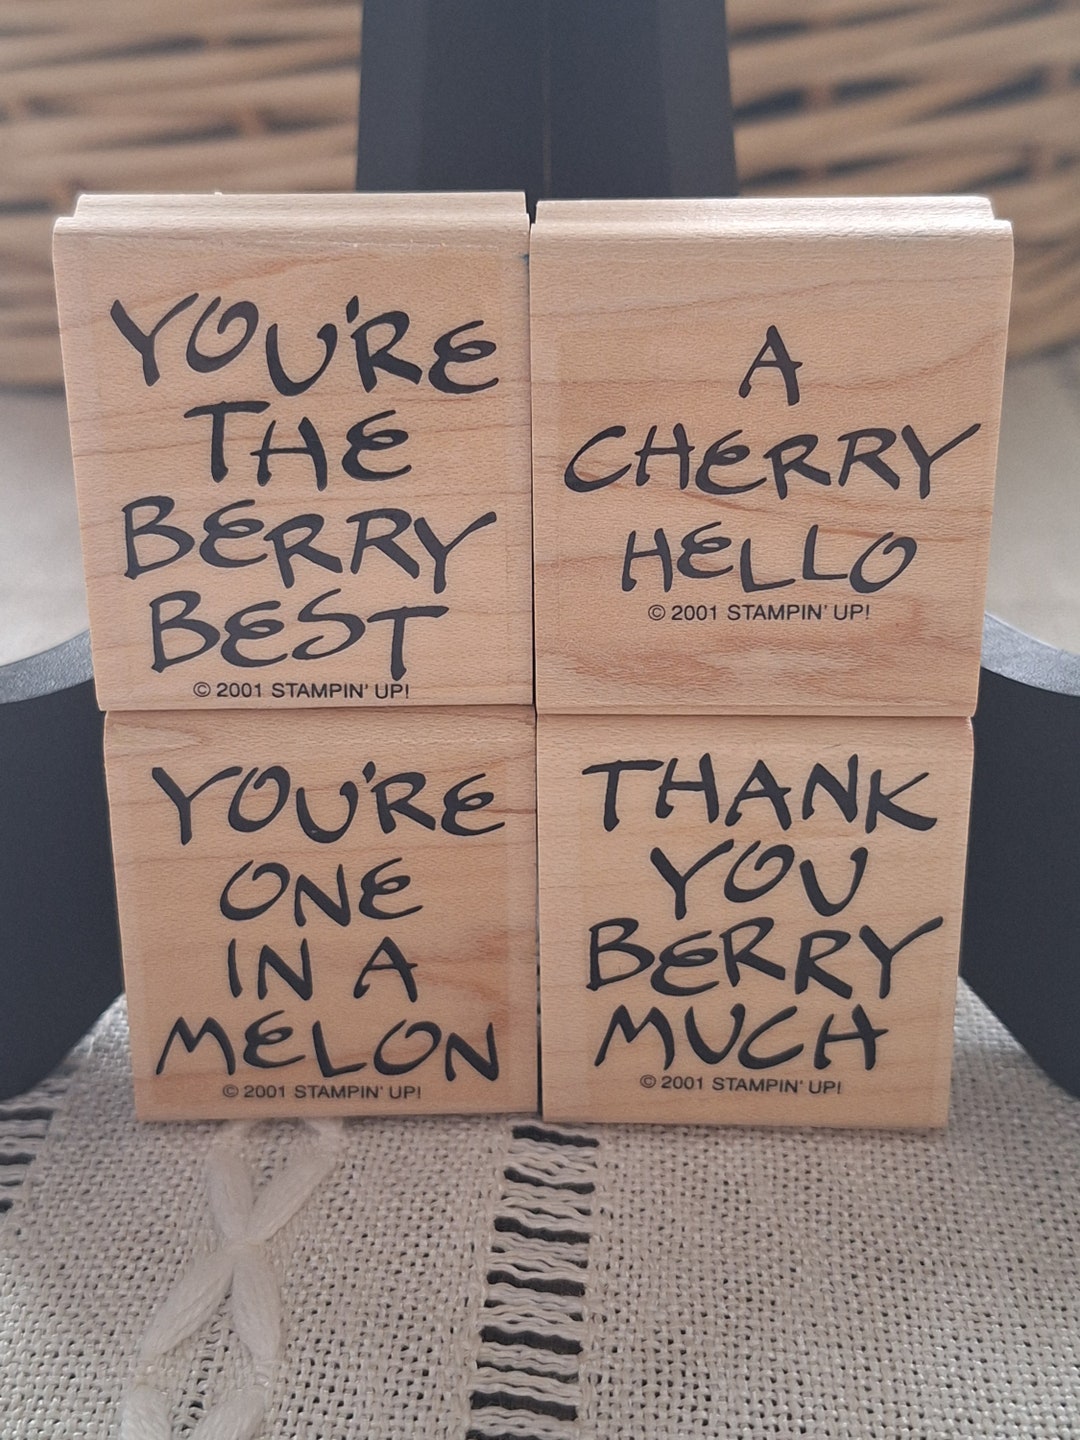 YOU'RE
THE
BERRY
BEST
© 2001 STAMPIN' UP!
A
CHERRY
HELLO
© 2001 STAMPIN' UP!
YOU'RE
ONE
IN A
MELON
© 2001 STAMPIN' UP!
THANK
YOU
BERRY
MUCH
© 2001 STAMPIN' UP!